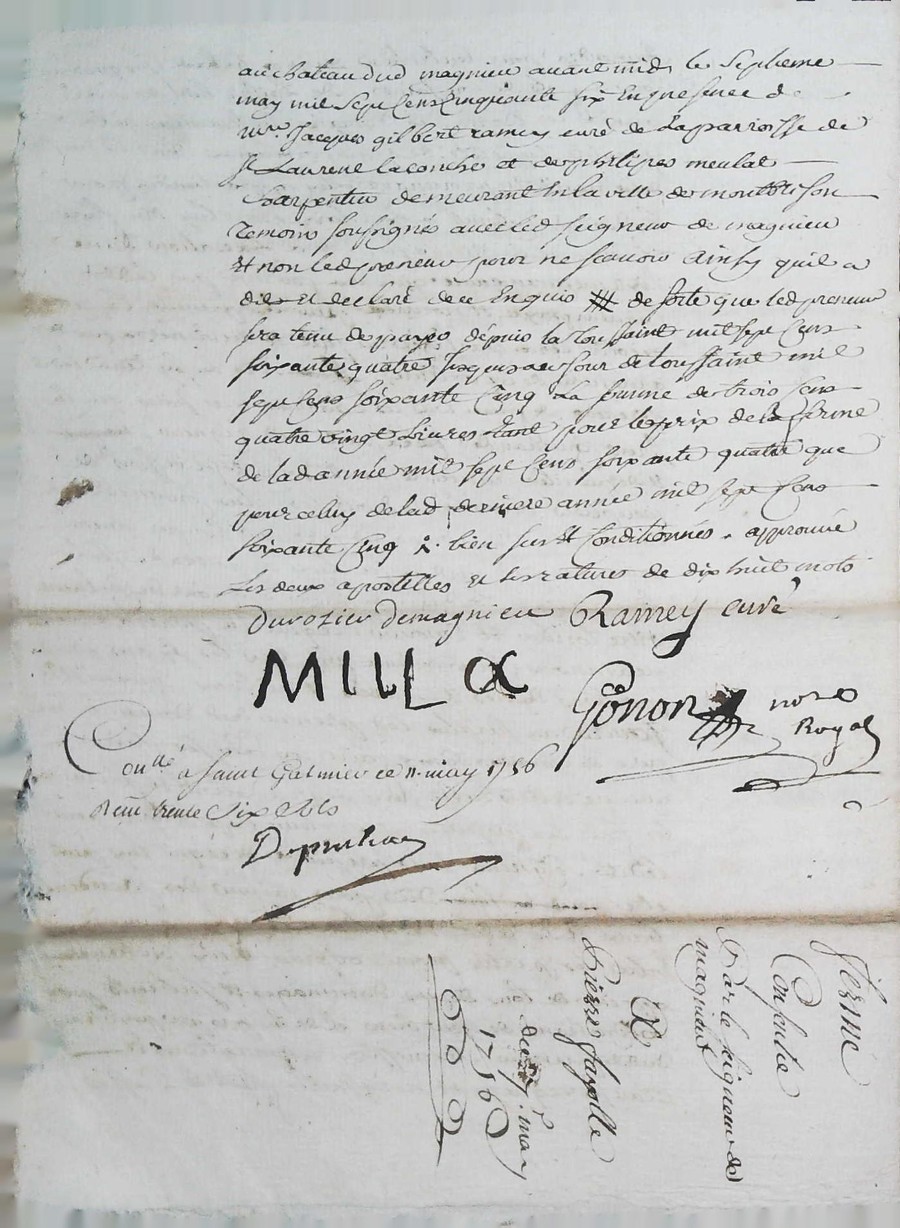 au chateau dud magnieu avant midy le septieme
may mil sept cens cinquante six En presence de
mre Jacques gilbert ramey curé de La parroisse de
st Laurent laconche et de philipes meulat
Charpentier demeurant En la ville de montbrison
Temoins soussignés avec led seigneur de magnieu
Et non led preneur pour ne scavoir Ainsy quil a
dit et declaré de ce Enquis de sorte que led preneur
sera tenu de payer depuis la toussaint mil sept cens
soixante quatre jusques au jour de toussaint mil
sept cens soixante cinq La somme de trois cens
quatre vingt Livres tant pour le prix de la ferme
de lad année mil sept cens soixante quatre que
pour celuy de lad derniere année mil sept cens
soixante cinq bien sus et conditionnés . approuvé
Les deux apostilles et les ratures de dix huit mots
Durozier demagnieu Ramey curé
MILLA
Gonon nore
Royal
Conllé a Saint Galmier ce 11 may 1756
Recu trente six sols
Ferme
Consentie
Par le seigneur de
magnieu
A
pierre fayolle
du 7 may
1756